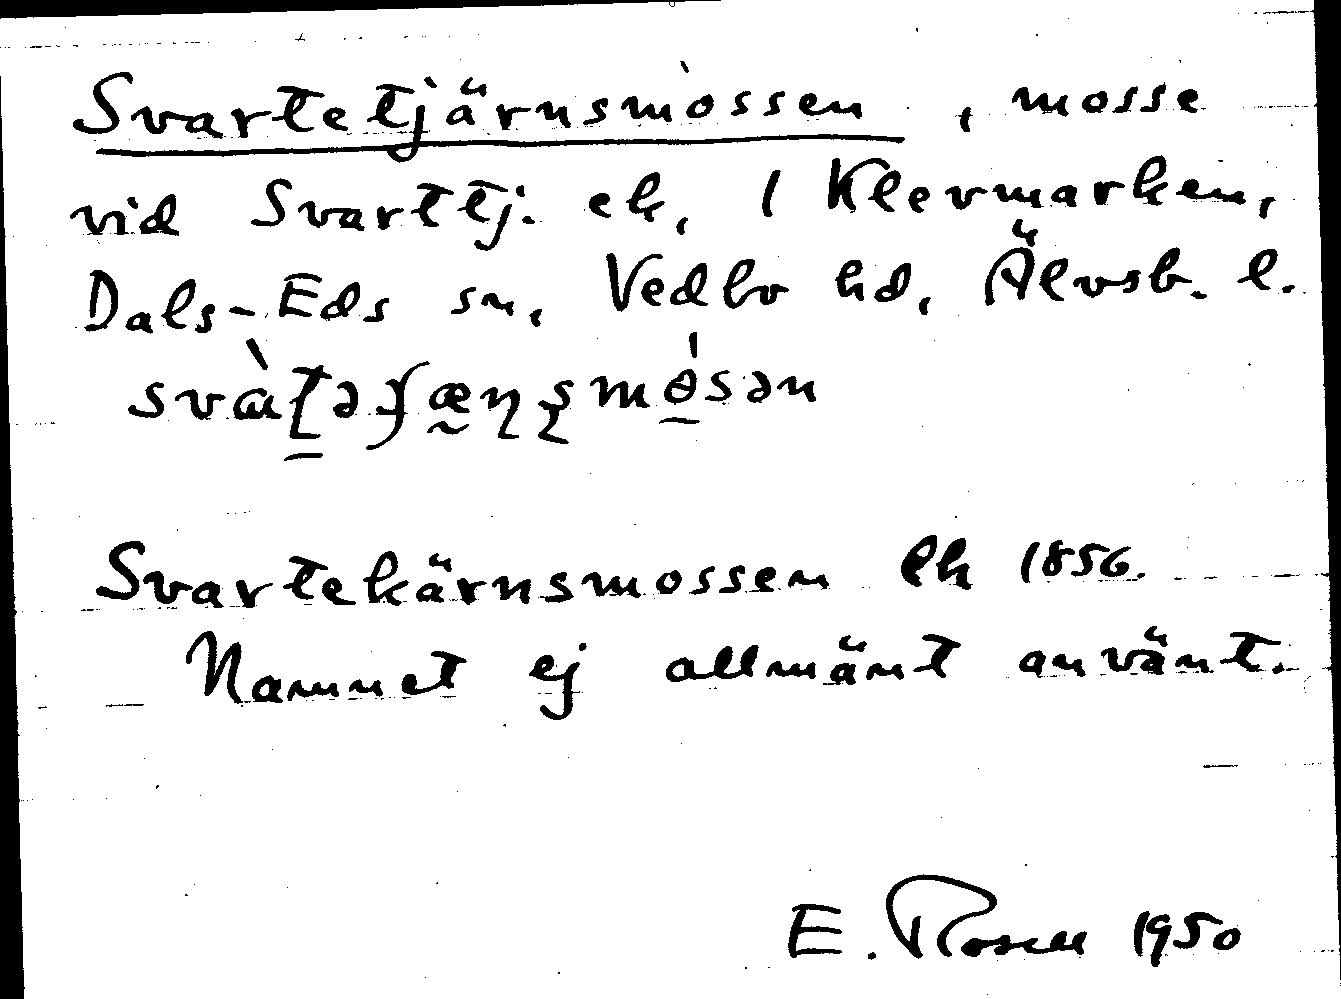 Svartetjärnsmòssen, mosse
vid Svarttj. ek, 1 Klevmarken,
Dals-Eds sn, Vedbo hd, Älvsb. l.
Svartekärnsmossen ek 1856.
Namnet ej allmänt använt.
E. Rosell 1950